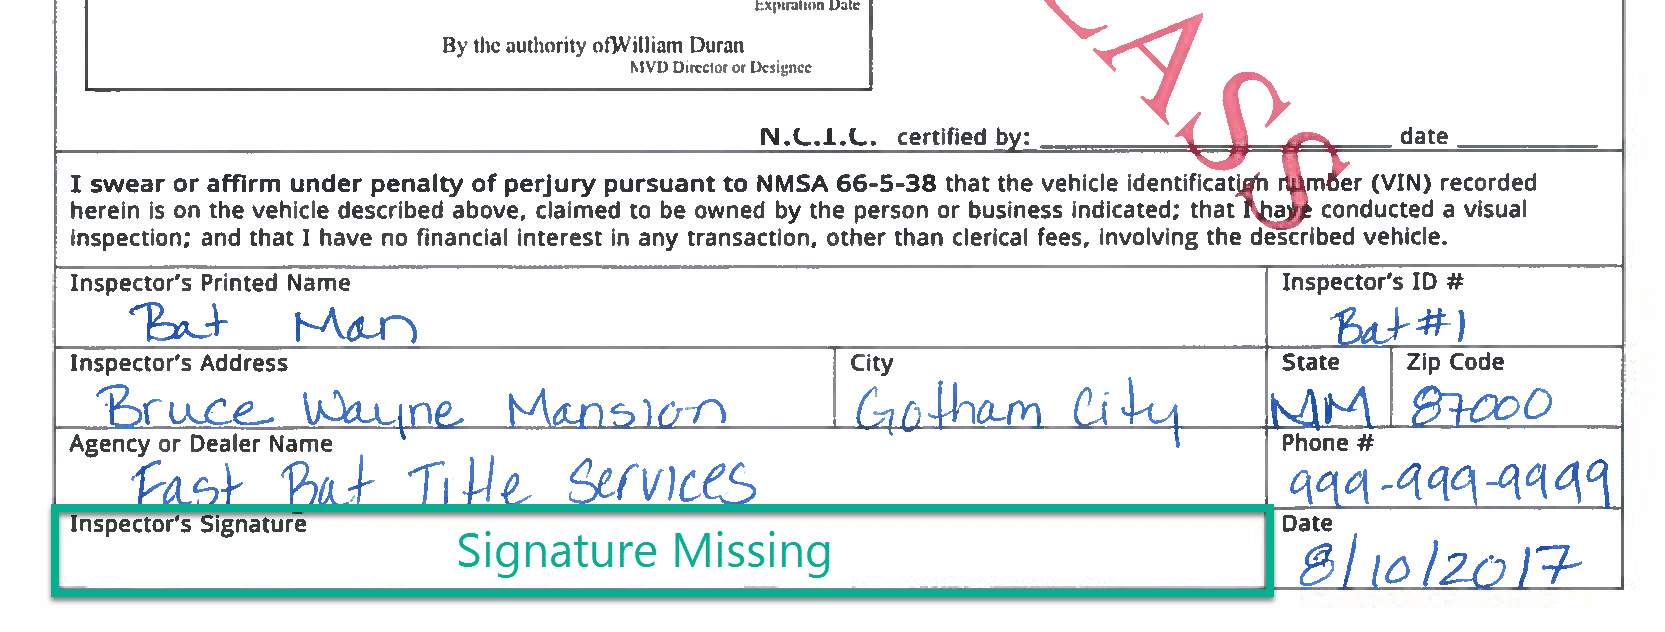 Expiration Date
By the authority of William Duran
MVD Director or Designee
LASS
N.C.I.C. certified by: date
I swear or affirm under penalty of perjury pursuant to NMSA 66-5-38 that the vehicle identification number (VIN) recorded
herein is on the vehicle described above, claimed to be owned by the person or business indicated; that I have conducted a visual
inspection; and that I have no financial interest in any transaction, other than clerical fees, involving the described vehicle.
Inspector's Printed Name Inspector's ID #
Bat Man Bat#1
Inspector's Address City State Zip Code
Bruce Wayne Mansion Gotham City NM 87000
Agency or Dealer Name Phone #
Fast Bat Title Services 999-999-9999
Inspector's Signature Date
Signature Missing 8/10/2017